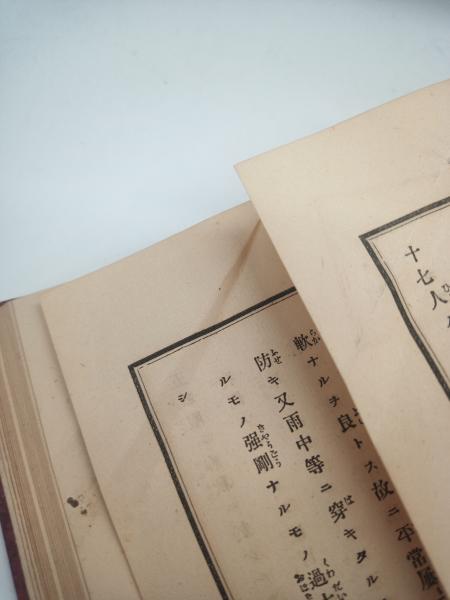 十七八
軟ナルヲ良トス故ニ平常
防キ又雨中等ニ穿キタル
ルモノ强剛ナルモノ過
シ